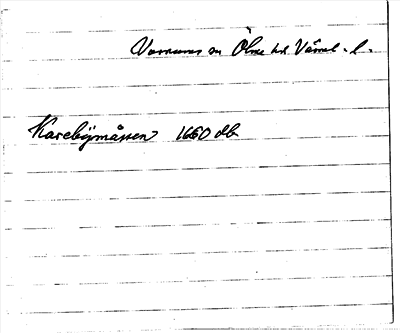 Varnums sn Ölme hd Värml. l.
Karebymåssen 1660 db